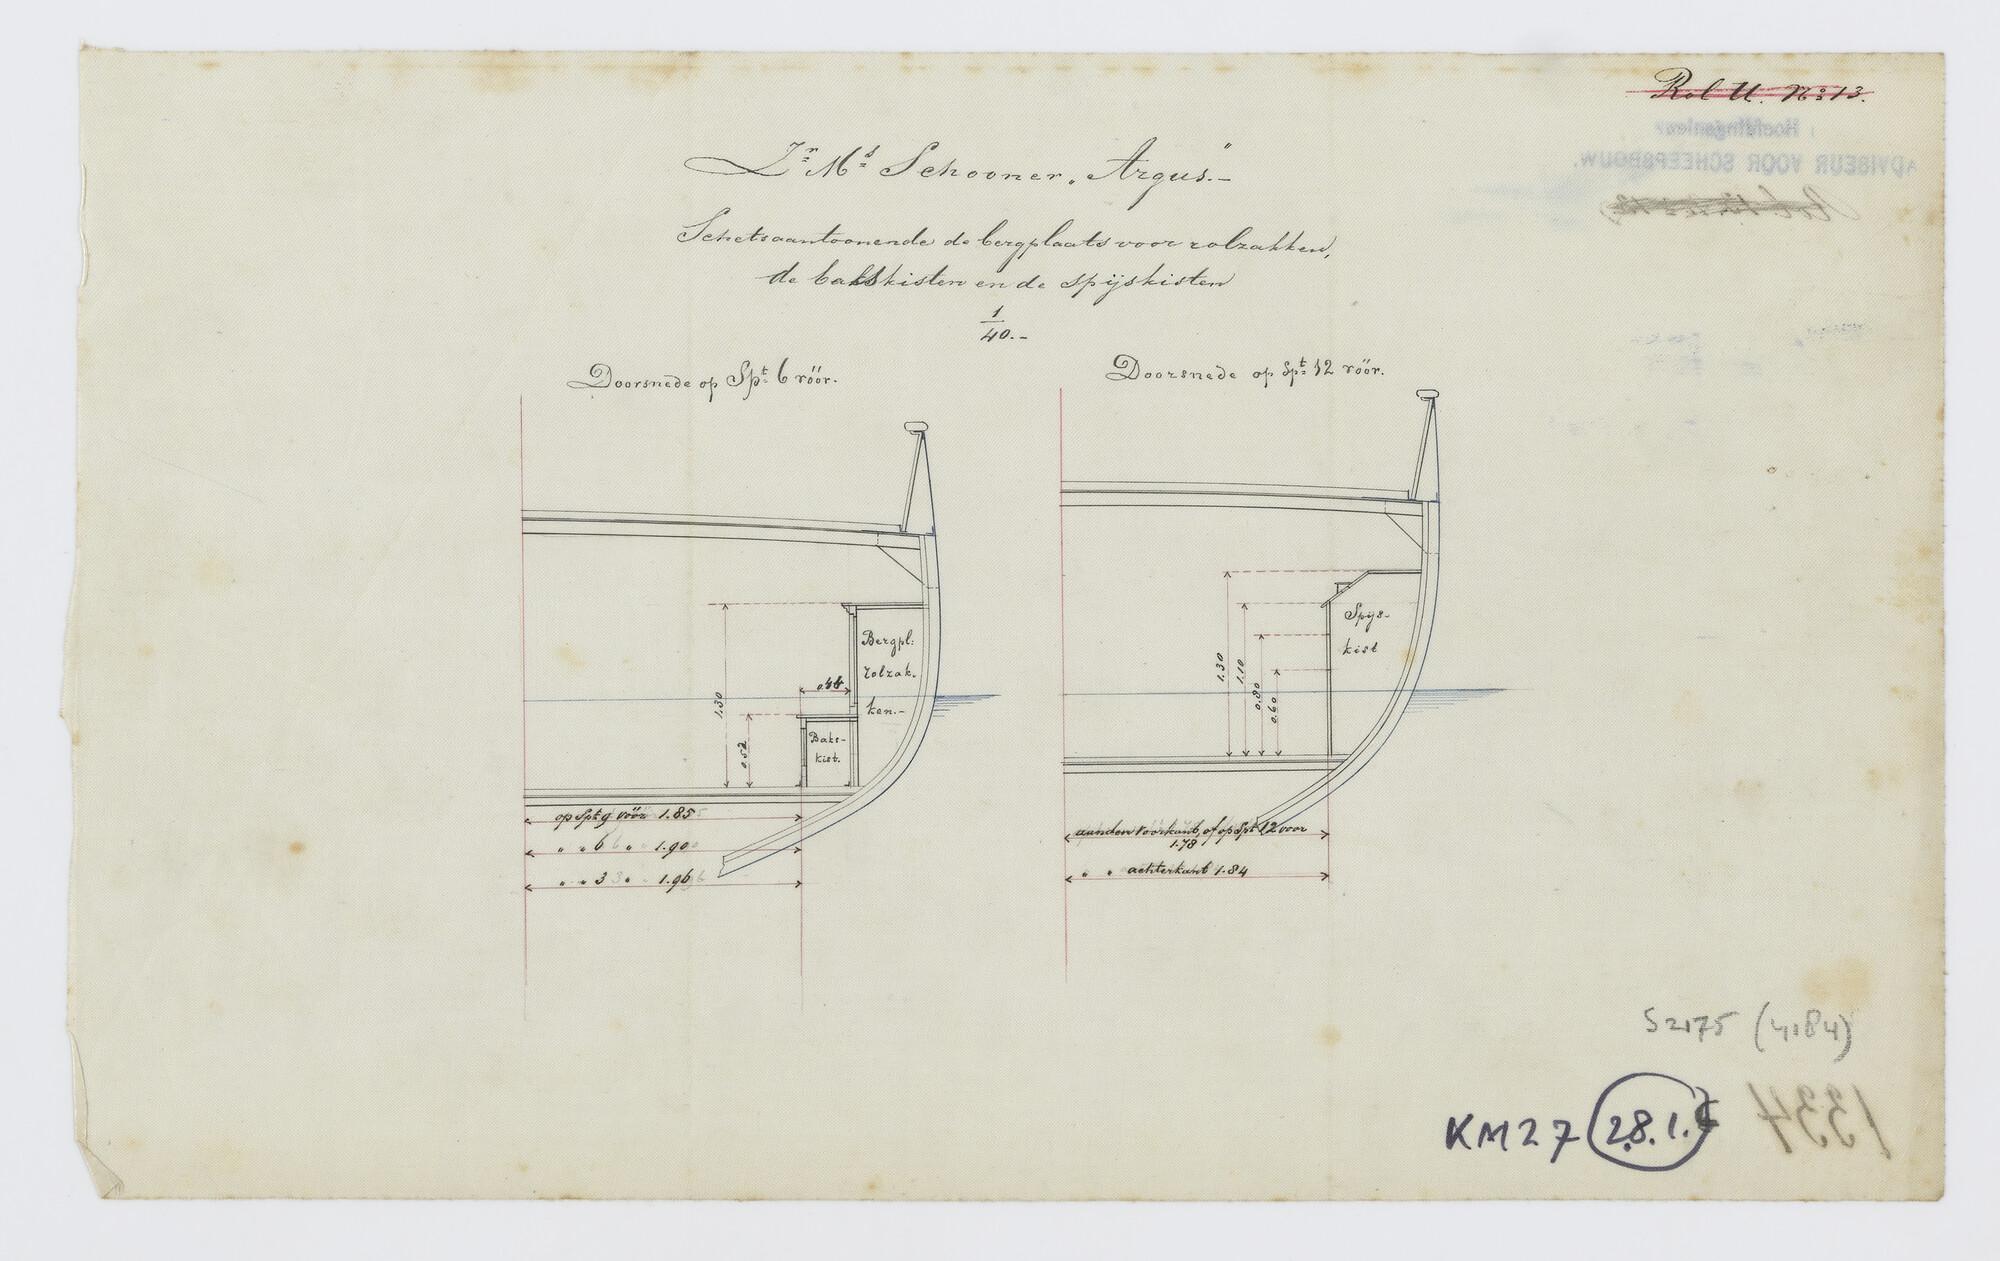 Rol U. No 13.
Hoofdingenieur
ADVISEUR VOOR SCHEEPSBOUW.
Zr Ms Schooner „Argus".-
Schetsaantoonende de bergplaats voor rolzakken,
de bakskisten en de spijskisten
1/40.-
Doorsnede op Spt 6 vóór.
Doorsnede op Spt 12 vóór.
Bergpl:
rolzak-
ken.-
Baks-
kist.
1.30
0.52
op Spt 9 vóór 1.85
" " 6 " 1.90
" " 3 " 1.96
Spijs-
kist
1.30
1.10
0.60
aan den voorkant, of op Spt 12 voor
1.78
" " achterkant 1.84
S2175 (4184)
1334
KM27 (28.1.)